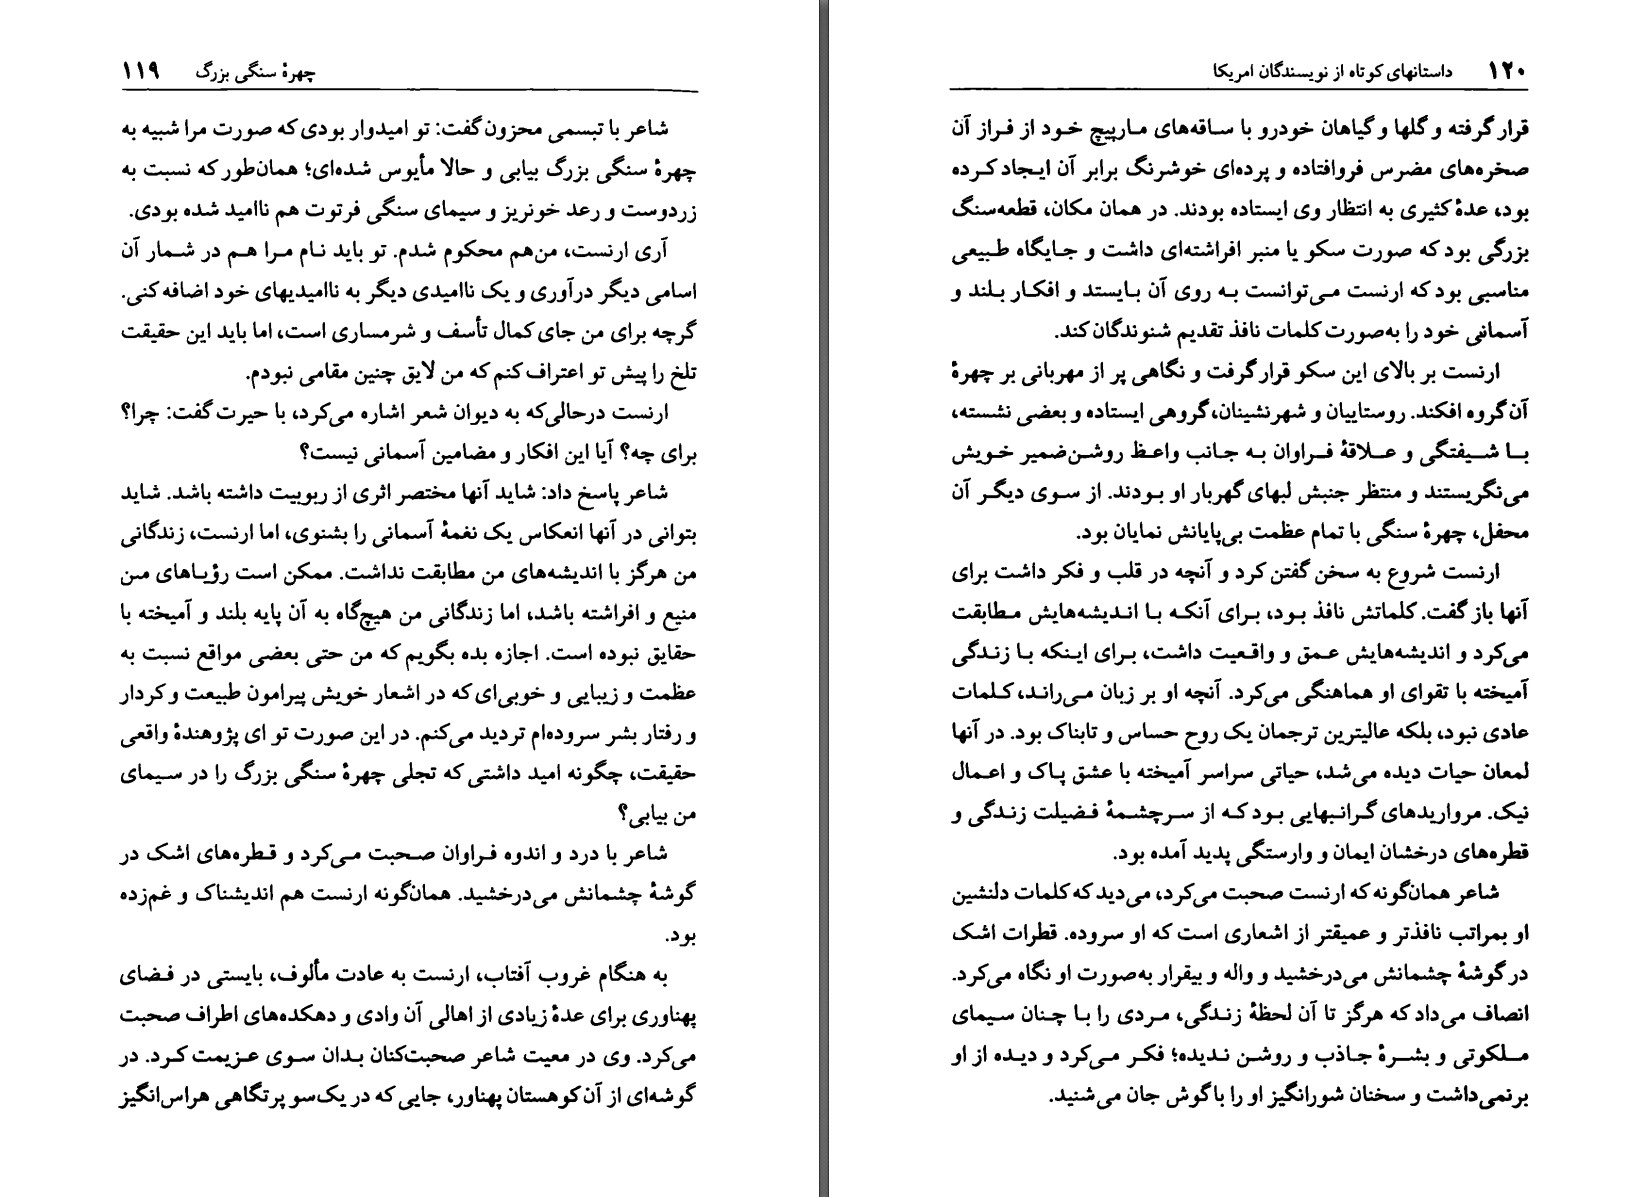 چهرهٔ سنگی بزرگ ۱۱۹
شاعر با تبسمی محزون گفت: تو امیدوار بودی که صورت مرا شبیه به
چهرهٔ سنگی بزرگ بیابی و حالا مأیوس شده‌ای؛ همان‌طور که نسبت به
زردوست و رعد خونریز و سیمای سنگی فرتوت هم ناامید شده بودی.
آری ارنست، من‌هم محکوم شدم. تو باید نام مرا هم در شمار آن
اسامی دیگر درآوری و یک ناامیدی دیگر به ناامیدیهای خود اضافه کنی.
گرچه برای من جای کمال تأسف و شرمساری است، اما باید این حقیقت
تلخ را پیش تو اعتراف کنم که من لایق چنین مقامی نبودم.
ارنست درحالی‌که به دیوان شعر اشاره می‌کرد، با حیرت گفت: چرا؟
برای چه؟ آیا این افکار و مضامین آسمانی نیست؟
شاعر پاسخ داد: شاید آنها مختصر اثری از ربوبیت داشته باشد. شاید
بتوانی در آنها انعکاس یک نغمهٔ آسمانی را بشنوی، اما ارنست، زندگانی
من هرگز با اندیشه‌های من مطابقت نداشت. ممکن است رؤیاهای من
منیع و افراشته باشد، اما زندگانی من هیچ‌گاه به آن پایه بلند و آمیخته با
حقایق نبوده است. اجازه بده بگویم که من حتی بعضی مواقع نسبت به
عظمت و زیبایی و خوبی‌ای که در اشعار خویش پیرامون طبیعت و کردار
و رفتار بشر سروده‌ام تردید می‌کنم. در این صورت تو ای پژوهندهٔ واقعی
حقیقت، چگونه امید داشتی که تجلی چهرهٔ سنگی بزرگ را در سیمای
من بیابی؟
شاعر با درد و اندوه فراوان صحبت می‌کرد و قطره‌های اشک در
گوشهٔ چشمانش می‌درخشید. همان‌گونه ارنست هم اندیشناک و غم‌زده
بود.
به هنگام غروب آفتاب، ارنست به عادت مألوف، بایستی در فضای
پهناوری برای عدهٔ زیادی از اهالی آن وادی و دهکده‌های اطراف صحبت
می‌کرد. وی در معیت شاعر صحبت‌کنان بدان سوی عزیمت کرد. در
گوشه‌ای از آن کوهستان پهناور، جایی که در یک‌سو پرتگاهی هراس‌انگیز
۱۲۰ داستانهای کوتاه از نویسندگان امریکا
قرار گرفته و گلها و گیاهان خودرو با ساقه‌های مارپیچ خود از فراز آن
صخره‌های مضرس فروافتاده و پرده‌ای خوشرنگ برابر آن ایجاد کرده
بود، عدهٔ کثیری به انتظار وی ایستاده بودند. در همان مکان، قطعه‌سنگ
بزرگی بود که صورت سکو یا منبر افراشته‌ای داشت و جایگاه طبیعی
مناسبی بود که ارنست می‌توانست به روی آن بایستد و افکار بلند و
آسمانی خود را به‌صورت کلمات نافذ تقدیم شنوندگان کند.
ارنست بر بالای این سکو قرار گرفت و نگاهی پر از مهربانی بر چهرهٔ
آن گروه افکند. روستاییان و شهرنشینان، گروهی ایستاده و بعضی نشسته،
با شیفتگی و علاقهٔ فراوان به جانب واعظ روشن‌ضمیر خویش
می‌نگریستند و منتظر جنبش لبهای گهربار او بودند. از سوی دیگر آن
محفل، چهرهٔ سنگی با تمام عظمت بی‌پایانش نمایان بود.
ارنست شروع به سخن گفتن کرد و آنچه در قلب و فکر داشت برای
آنها باز گفت. کلماتش نافذ بود، برای آنکه با اندیشه‌هایش مطابقت
می‌کرد و اندیشه‌هایش عمق و واقعیت داشت، برای اینکه با زندگی
آمیخته با تقوای او هماهنگی می‌کرد. آنچه او بر زبان می‌راند، کلمات
عادی نبود، بلکه عالیترین ترجمان یک روح حساس و تابناک بود. در آنها
لمعان حیات دیده می‌شد، حیاتی سراسر آمیخته با عشق پاک و اعمال
نیک. مرواریدهای گرانبهایی بود که از سرچشمهٔ فضیلت زندگی و
قطره‌های درخشان ایمان و وارستگی پدید آمده بود.
شاعر همان‌گونه که ارنست صحبت می‌کرد، می‌دید که کلمات دلنشین
او بمراتب نافذتر و عمیقتر از اشعاری است که او سروده. قطرات اشک
در گوشهٔ چشمانش می‌درخشید و واله و بیقرار به‌صورت او نگاه می‌کرد.
انصاف می‌داد که هرگز تا آن لحظهٔ زندگی، مردی را با چنان سیمای
ملکوتی و بشرهٔ جاذب و روشن ندیده؛ فکر می‌کرد و دیده از او
برنمی‌داشت و سخنان شورانگیز او را با گوش جان می‌شنید.